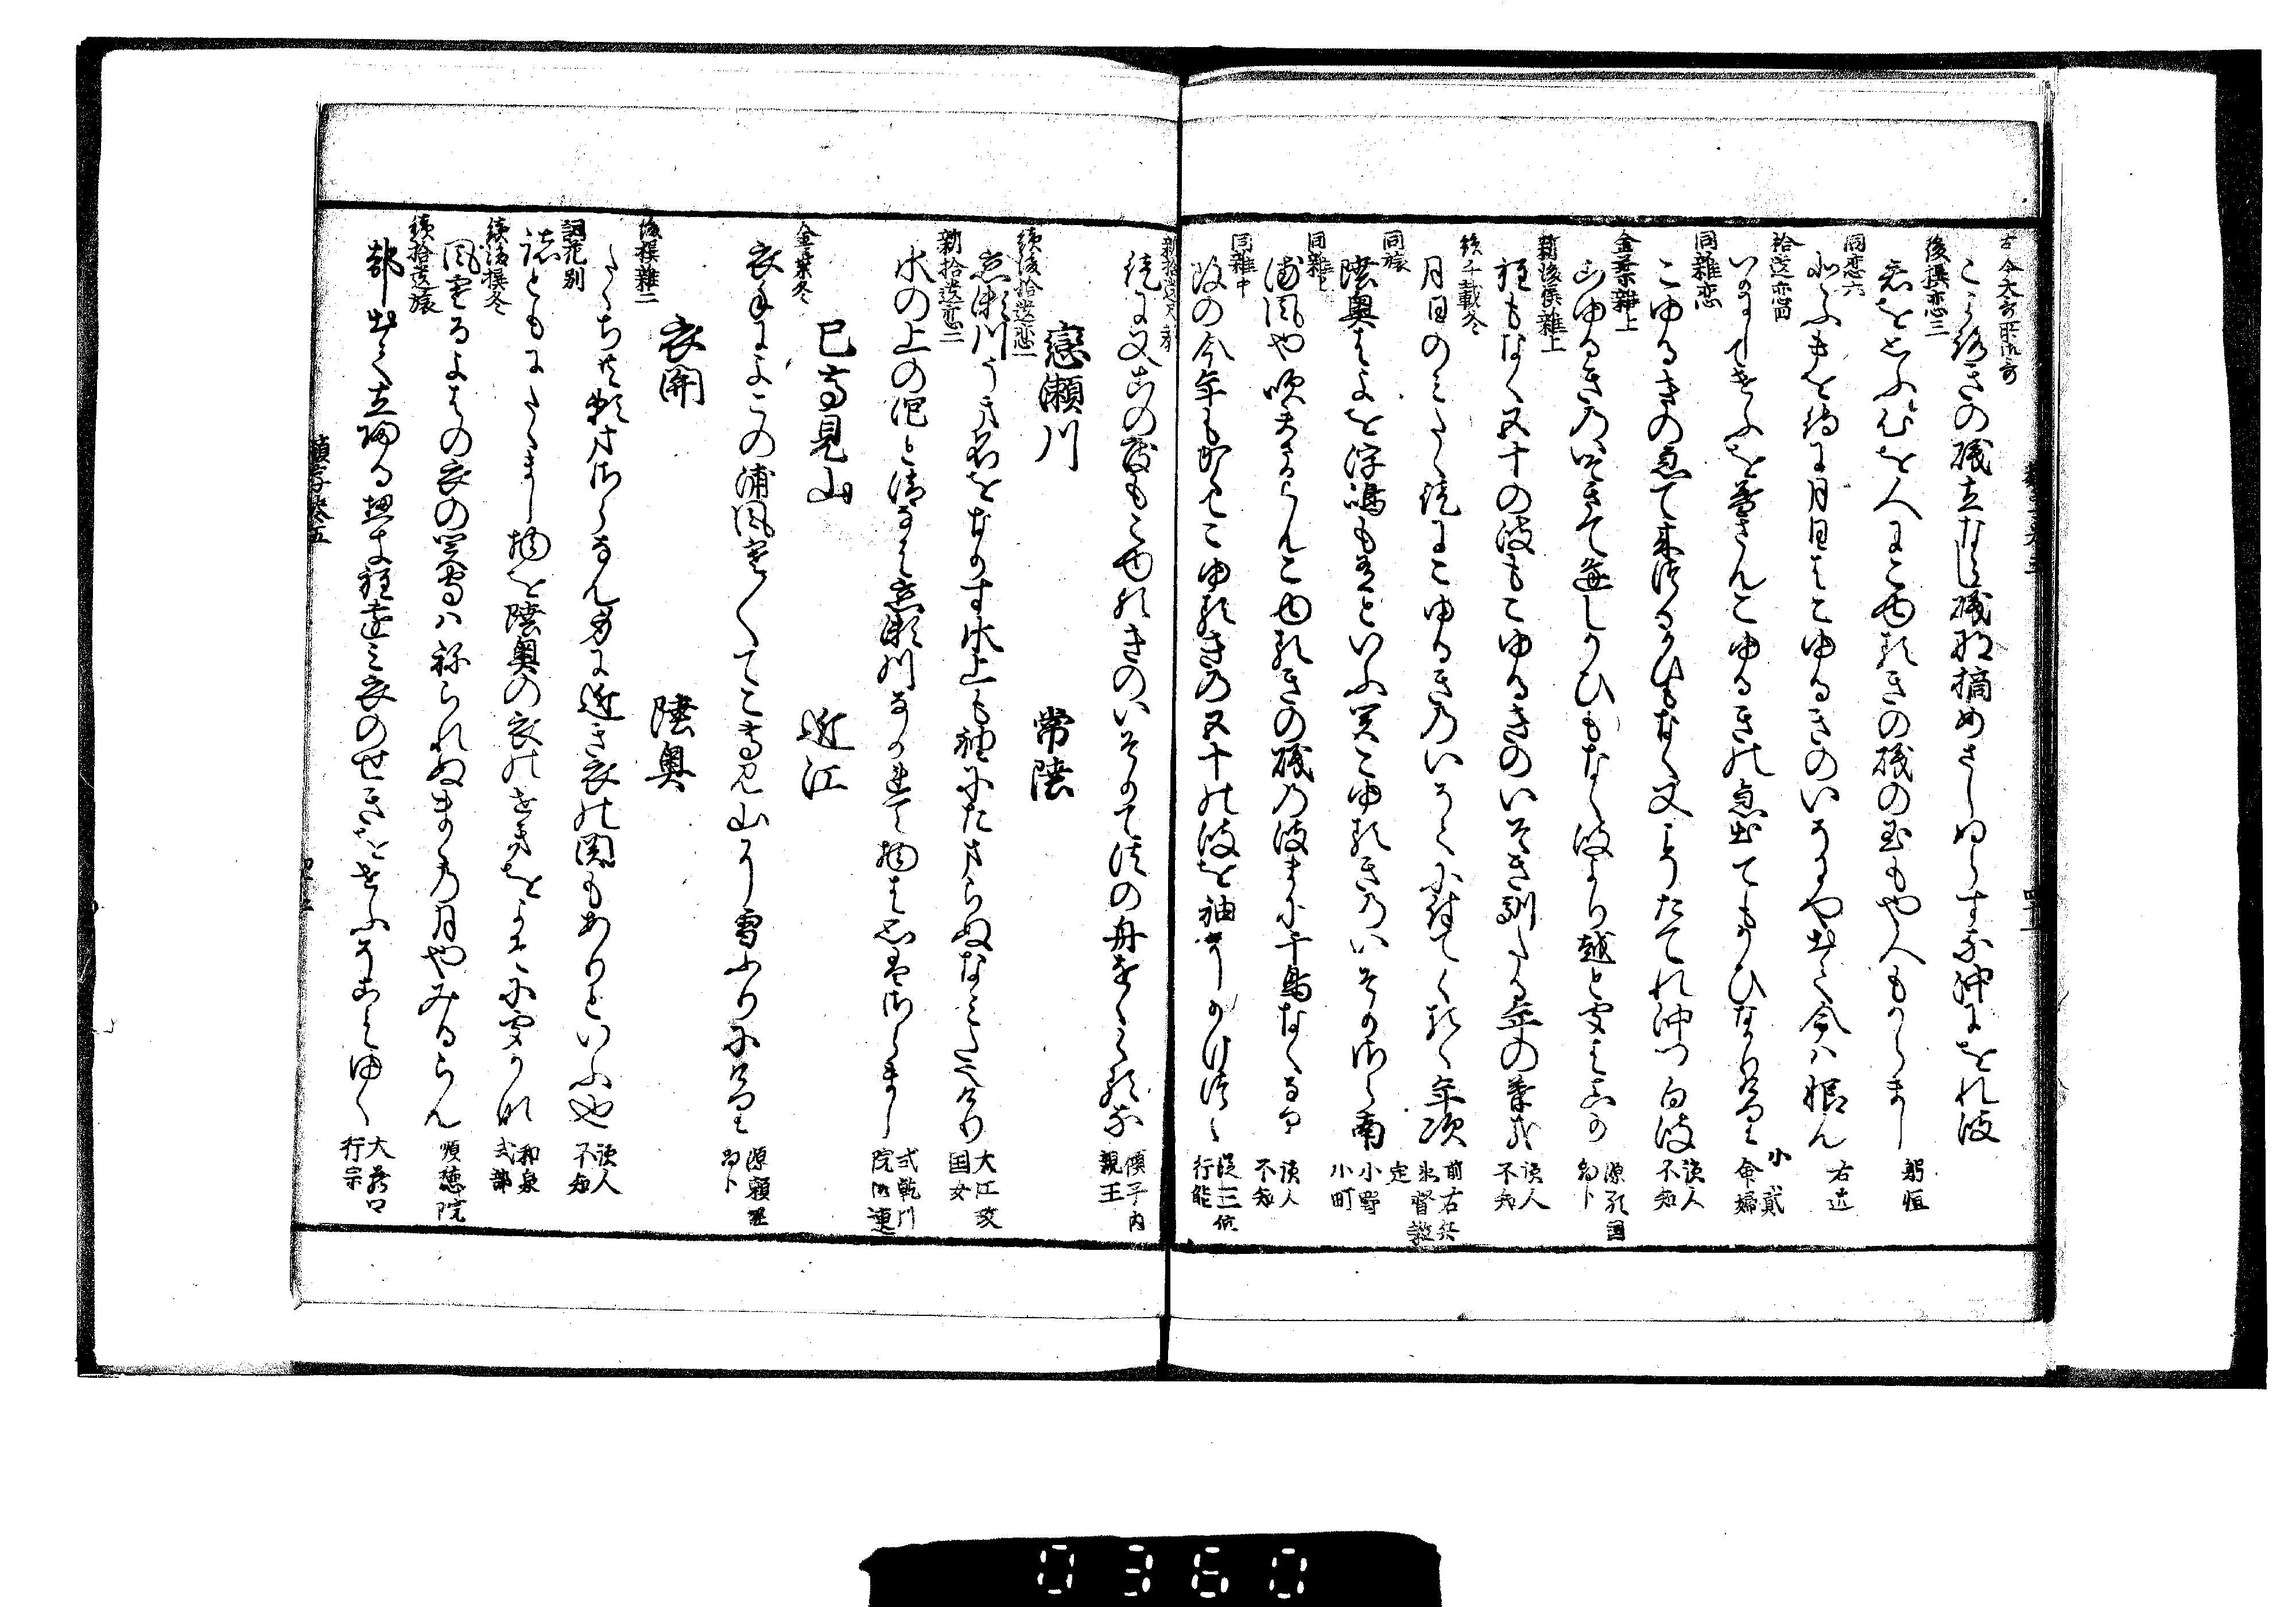 古今大哥所御哥
こよろきの磯立ならし磯な摘めさしぬらすな沖にをれ波
後撰恋三
君を思ふ心を人にこゆるきの磯の玉もや今もからまし 躬恒
同恋六
こふるきを待に月日はこゆるきのいそにや出て今は恨ん 右近
拾遺恋四
いかにしてけふを暮さんこゆるきの急出てもかひなかりけり 小貳命婦
同雑恋
こゆるきの急て来つるかひもなく又こそたてれ沖つ白波 読人不知
金葉雑上
こゆるきのいそきて逢しかひもなく波より越と聞はまことか
新後撰雑上
程もなく又十の波もこゆるきのいそき馴たる年の暮哉 読人不知
続千載冬
月日のみたゝ徒にこゆるきのいそくに付てくるゝ年哉 前右兵衛督教定
同旅
陸奥はよを浮嶋も有といふ関こゆるきのいそかさらなん 小野小町
同雑上
浦風や吹まさるらんこゆるきの磯の波まに千鳥なく也 読人不知
同雑中
故の今年も暮てこゆるきの五十の波を袖にかけつゝ 従三位行能
新拾遺尺教
徒に又この度もこゆるきのいそかて法の舟をくるしな 儀子内親王
戀瀬川 常陸
続後拾遺恋一
恋瀬川うき名をなかす水上も袖にたまらぬなみたなりけり 大江政国女
新拾遺恋二
水の上の泡と消なは恋瀬川なかれて物は思はさらまし 式乾門院御匣
巳高見山 近江
金葉冬
衣手によこの浦風寒くてこたかみ山に雪ふりにけり 源頼綱
衣関 陸奥
後撰雑二
たゝちとも頼まさらなん身に近き衣の関もありといふ也 読人不知
詞花別
諸ともにたゝまし物を陸奥の衣のせきをよそに聞かな 和泉式部
続後撰冬
風寒るよはの衣の関守はねられぬまゝの月やみるらん 順徳院
続拾遺旅
都出て立帰る程も程遠み衣のせきをけふそこえゆく 大蔵卿行宗
類字巻五